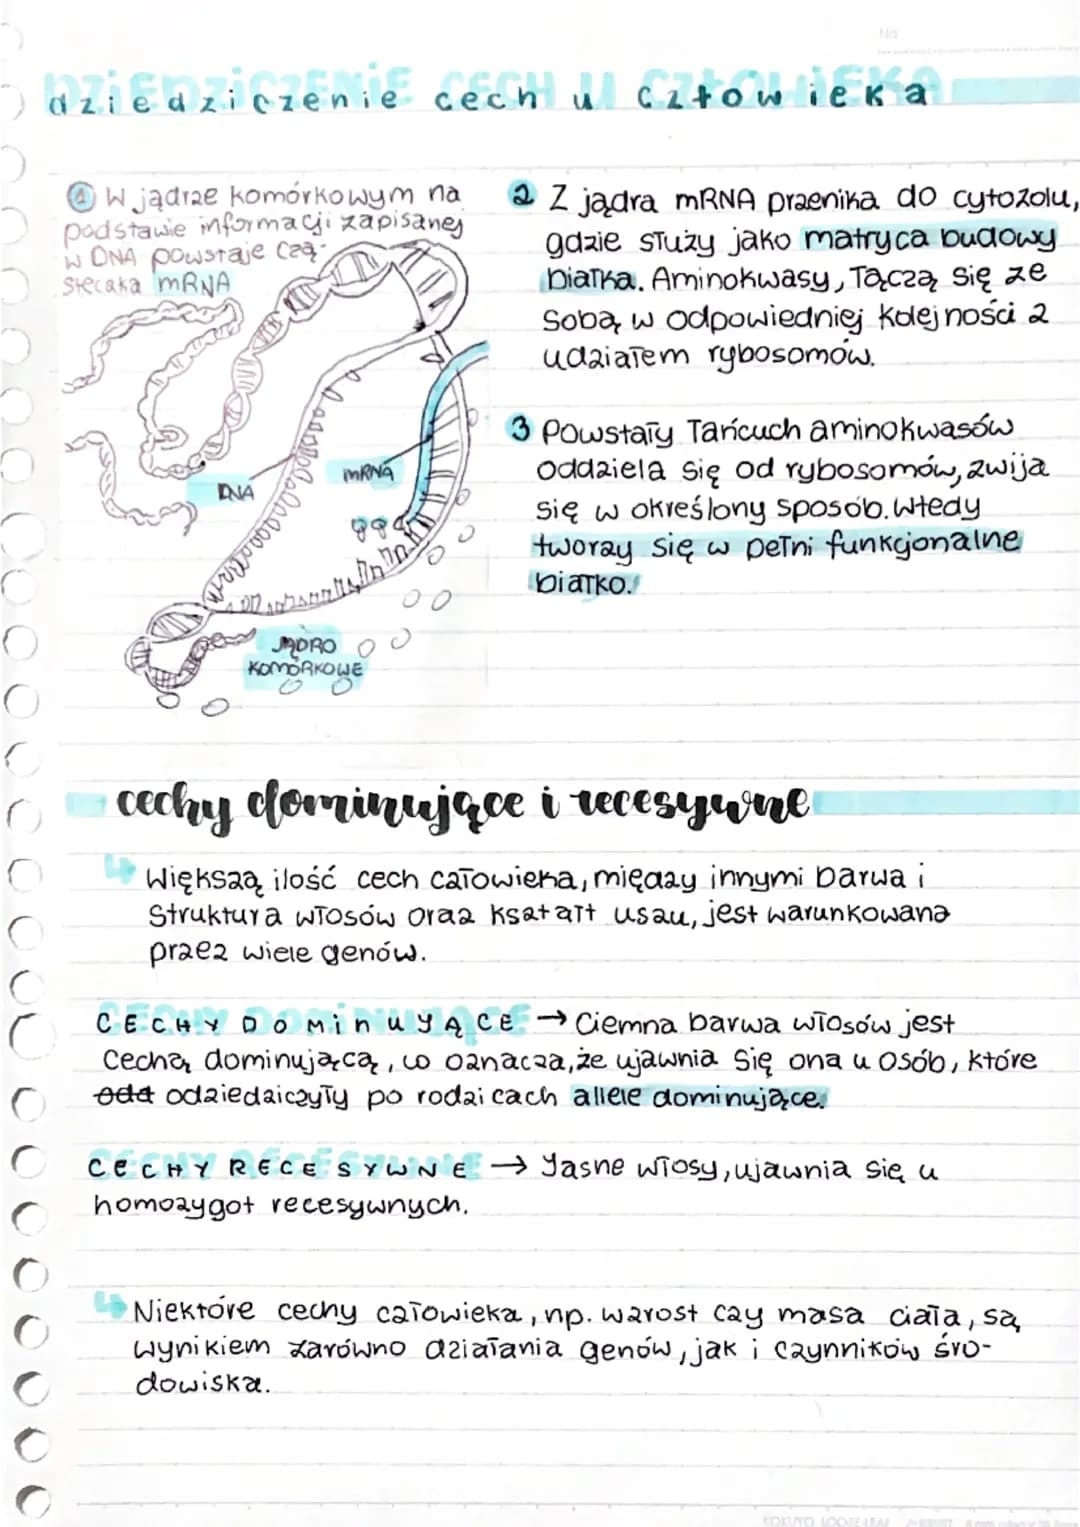 No
dziedziczenie cech u człowieka
1 W jądrze komórkowym na
podstawie informacji zapisanej
w DNA powstaje czą-
steczka mRNA
DNA
mRNA
JĄDRO
KOMÓRKOWE
2 Z jądra mRNA przenika do cytozolu,
gdzie służy jako matryca budowy
białka. Aminokwasy, łączą się ze
sobą w odpowiedniej kolejności z
udziałem rybosomów.
3 Powstały łańcuch aminokwasów
oddziela się od rybosomów, zwija
się w określony sposób. Wtedy
tworzy się w pełni funkcjonalne
białko.
cechy dominujące i recesywne
↳ Większą ilość cech człowieka, między innymi barwa i
struktura włosów oraz kształt uszu, jest warunkowana
przez wiele genów.
CECHY DOMINUJĄCE → Ciemna barwa włosów jest
cechą dominującą, co oznacza, że ujawnia się ona u osób, które
odziedziczyły po rodzicach allele dominujące.
CECHY RECESYWNE → Jasne włosy, ujawnia się u
homozygot recesywnych.
↳ Niektóre cechy człowieka, np. wzrost czy masa ciała, są
wynikiem zarówno działania genów, jak i czynników śro-
dowiska.
KOKUYO LOOSE-LEAF